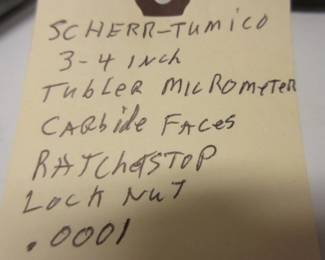 SCHERR-TUMICO
3-4 INCH
TUBLER MICROMETER
CARBIDE FACES
RATCHETSTOP
LOCK NUT
.0001